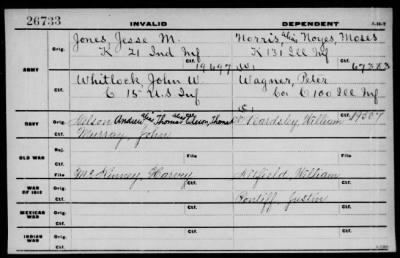 26733 INVALID DEPENDENT
ARMY
Orig. Jones, Jesse M. Norris, alias Noyes, Moses
K 21 Ind Inf K 131 Ill Inf
Ctf.
Orig. Whitlock, John W. Wagner, Peter
C 15 U.S Inf Co C 100 Ill Inf
Ctf.
NAVY
Orig. Nelson Andrew alias Thomas
Ctf. Murray, John William 19507
OLD WAR
Rej.
Ctf. File File
WAR OF 1812
Orig. McKinney, Harvey William
Ctf. Pontiff, Justin
MEXICAN WAR
Orig.
Ctf.
INDIAN WAR
Orig.
Ctf.